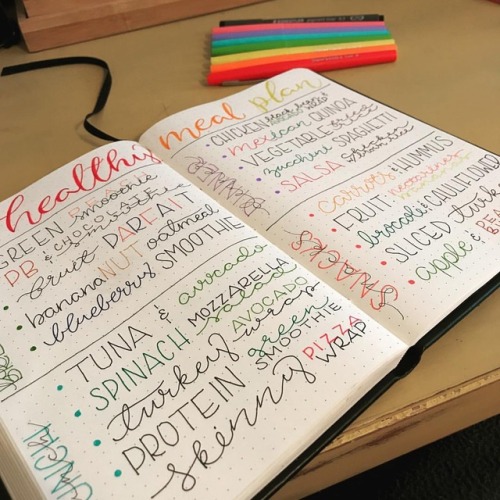 healthy
GREEN smoothie
PB & CHOCO smoothie
fruit PARFAIT
banana NUT oatmeal
blueberry SMOOTHIE
TUNA & avocado
SPINACH MOZZARELLA salad
turkey AVOCADO wrap
PROTEIN green SMOOTHIE
skinny PIZZA WRAP
LUNCH
meal plan
CHICKEN black bean &
mexican QUINOA
VEGETABLE
zucchini SPAGHETTI
SALSA chicken
DINNER
carrots & HUMMUS
FRUIT
brocoli & CAULIFLOWER
SLICED turkey
apple &
SNACKS